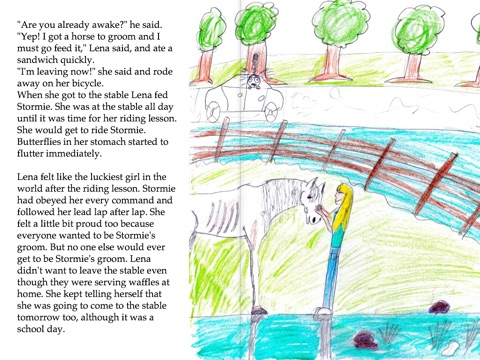 "Are you already awake?" he said.
"Yep! I got a horse to groom and I
must go feed it," Lena said, and ate a
sandwich quickly.
"I'm leaving now!" she said and rode
away on her bicycle.
When she got to the stable Lena fed
Stormie. She was at the stable all day
until it was time for her riding lesson.
She would get to ride Stormie.
Butterflies in her stomach started to
flutter immediately.

Lena felt like the luckiest girl in the
world after the riding lesson. Stormie
had obeyed her every command and
followed her lead lap after lap. She
felt a little bit proud too because
everyone wanted to be Stormie's
groom. But no one else would ever
get to be Stormie's groom. Lena
didn't want to leave the stable even
though they were serving waffles at
home. She kept telling herself that
she was going to come to the stable
tomorrow too, although it was a
school day.